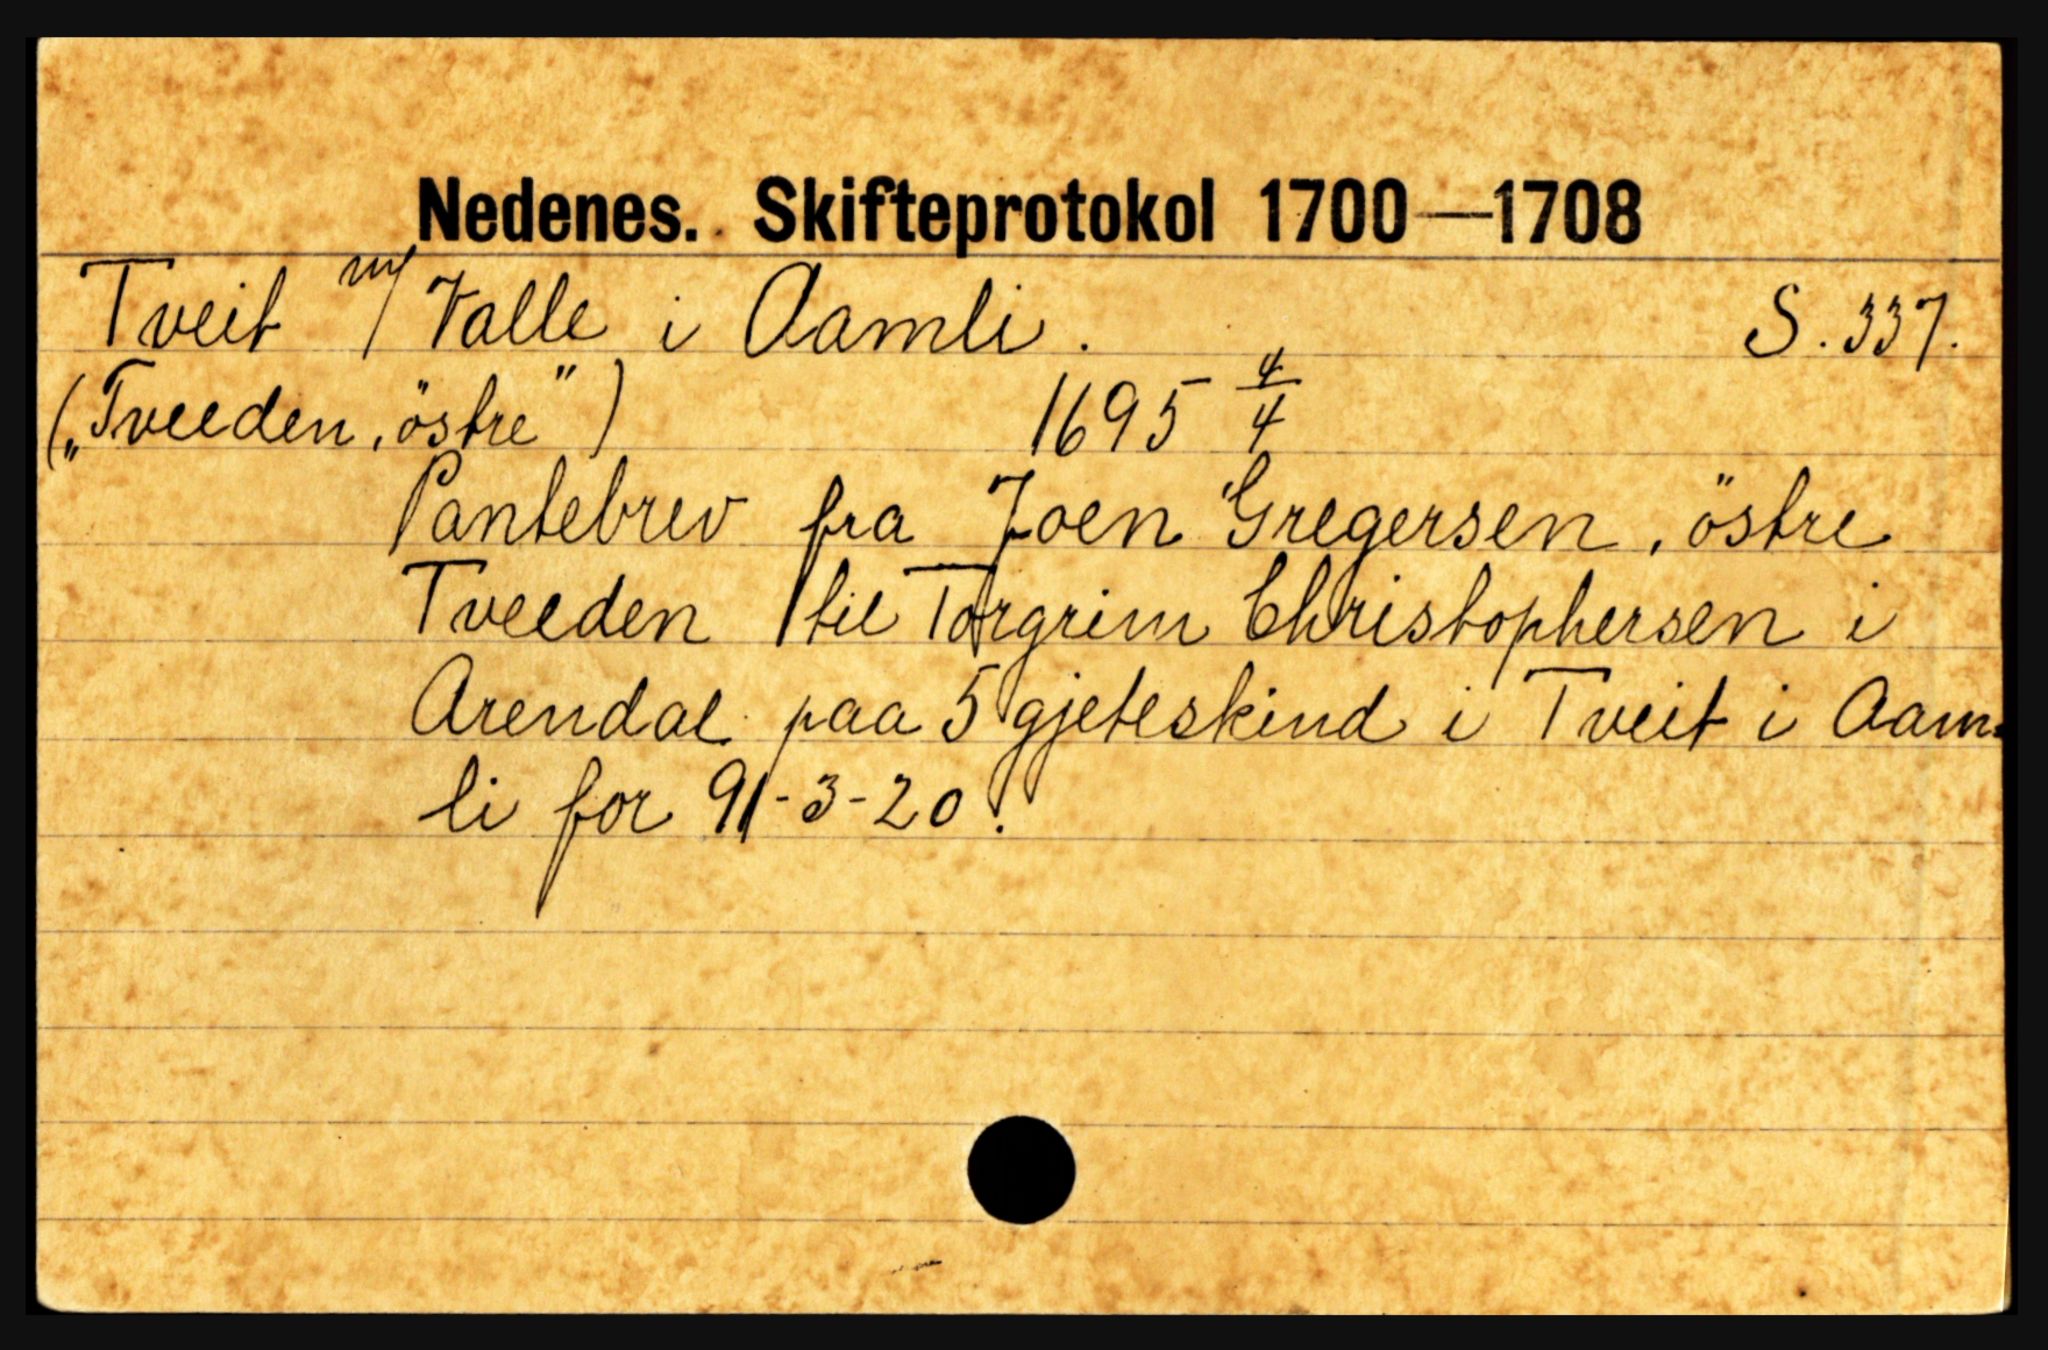 Nedenes. Skifteprotokol 1700—1708
Tveit m/ Valle i Aamli. S. 337.
(„Tveeden, östre") 1695 4/4
Pantebrev fra Joen Gregersen, östre
Tveeden til Torgrim Christophersen i
Arendal paa 5 gjeteskind i Tveit i Aam-
li for 91-3-20.